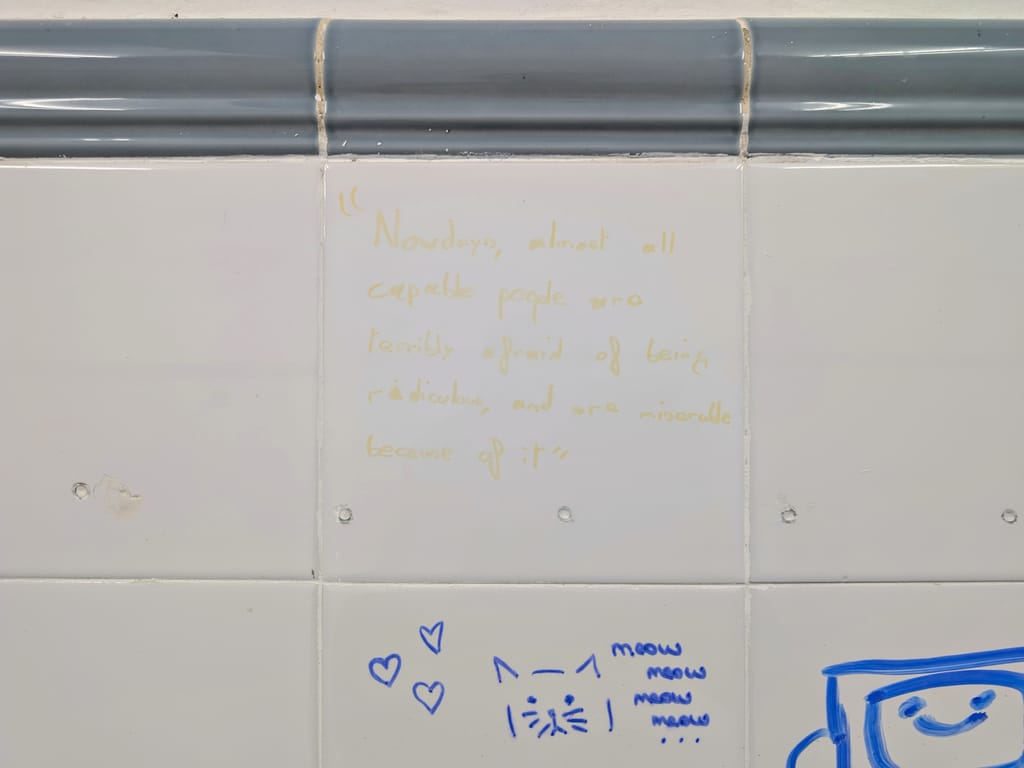 "Nowdays, almost all
capable people are
terribly afraid of being
ridiculous, and are miserable
because of it"
meow
meow
meow
meow
...